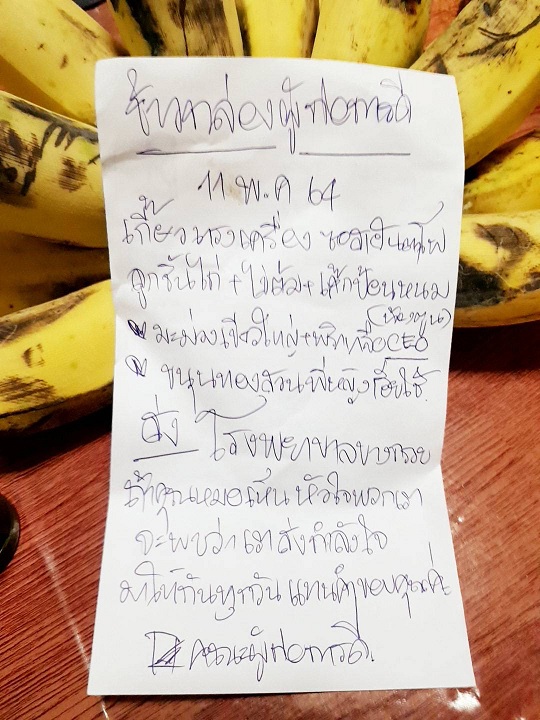 ข้าวกล่องผู้ก่อการดี
11 พ.ค 64
เกี๊ยวทรงเครื่อง ซอสเย็นตาโฟ
ลูกชิ้นไก่ + ไข่ต้ม + เค้กป้อนหนม
มะม่วงเขียวใหญ่+พริกเกลือCEO
ขนุนทองสวนพี่หญิง
ส่ง โรงพยาบาลบางกรวย
ถ้าคุณหมอเห็น หัวใจพวกเรา
จะพบว่า เราส่งกำลังใจ
มาให้กันทุกวัน แทนคำขอบคุณค่ะ
คณะผู้ก่อการดี.